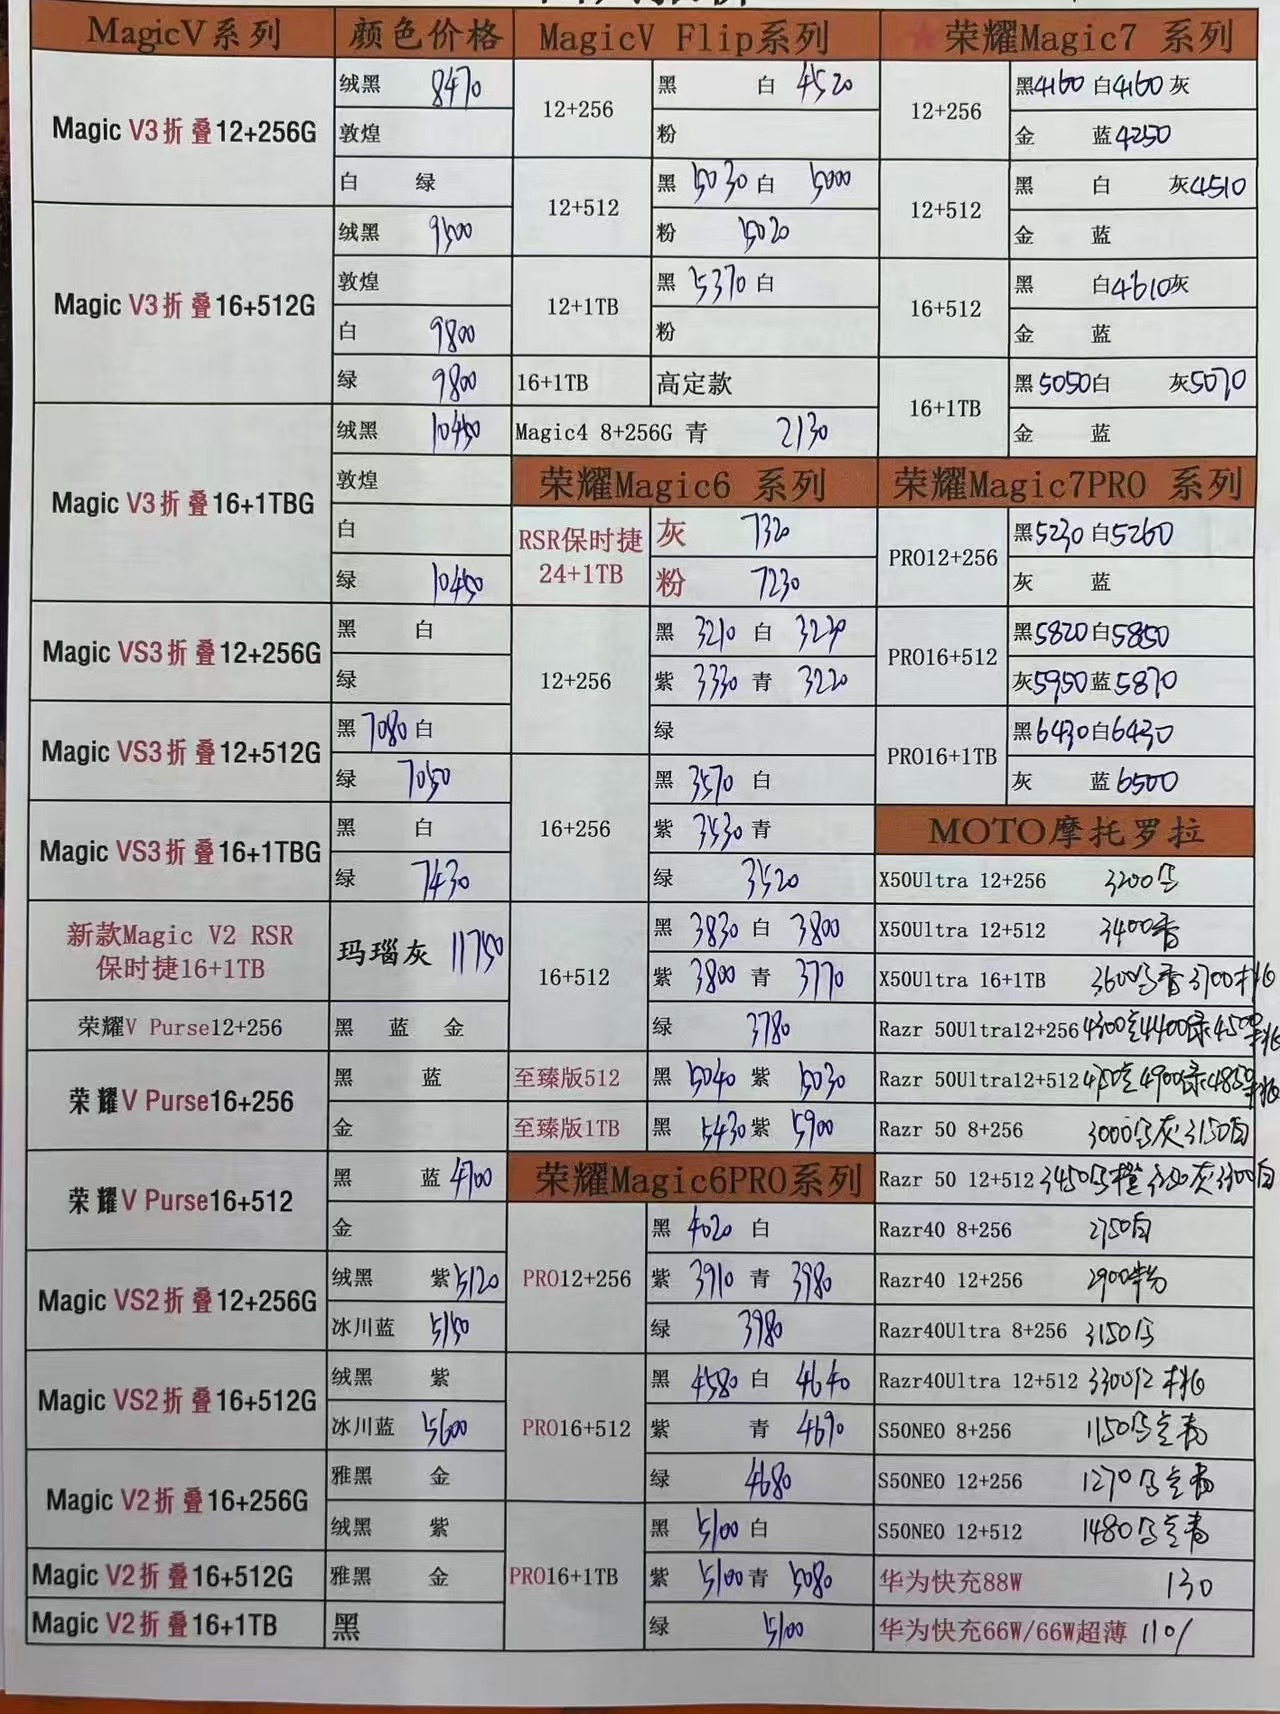 MagicV系列 颜色价格
Magic V3折叠12+256G
绒黑 8470
敦煌
白 绿
Magic V3折叠16+512G
绒黑 9500
敦煌
白 9800
绿 9800
Magic V3折叠16+1TBG
绒黑 10450
敦煌
白
绿 10450
Magic VS3折叠12+256G
黑 白
绿
Magic VS3折叠12+512G
黑7080白
绿 7050
Magic VS3折叠16+1TBG
黑 白
绿 7430
新款Magic V2 RSR
保时捷16+1TB
玛瑙灰 11750
荣耀V Purse12+256 黑 蓝 金
荣耀V Purse16+256
黑 蓝
金
荣耀V Purse16+512
黑 蓝4700
金
Magic VS2折叠12+256G
绒黑 紫5120
冰川蓝 5150
Magic VS2折叠16+512G
绒黑 紫
冰川蓝 5600
Magic V2折叠16+256G
雅黑 金
绒黑 紫
Magic V2折叠16+512G 雅黑 金
Magic V2折叠16+1TB 黑
MagicV Flip系列
12+256
黑 白 4520
粉
12+512
黑 5030 白 5000
粉 5020
12+1TB
黑 5370 白
粉
16+1TB 高定款
Magic4 8+256G 青 2130
荣耀Magic6 系列
RSR保时捷
24+1TB
灰 7320
粉 7230
12+256
黑 3210 白 3230
紫 3330 青 3220
绿
16+256
黑 3570 白
紫 3530青
绿 3520
16+512
黑 3830 白 3800
紫 3800 青 3770
绿 3780
至臻版512 黑 5040 紫 5030
至臻版1TB 黑 5430紫 5900
荣耀Magic6PRO系列
PRO12+256
黑 4020 白
紫 3910 青 3980
绿 3980
PRO16+512
黑 4580 白 4640
紫 青 4690
绿 4680
PRO16+1TB
黑 5100 白
紫 5100青 5080
绿 5100
荣耀Magic7 系列
12+256
黑4160 白4160 灰
金 蓝4250
12+512
黑 白 灰4510
金 蓝
16+512
黑 白4610灰
金 蓝
16+1TB
黑5050白 灰5070
金 蓝
荣耀Magic7PRO 系列
PRO12+256
黑5230白5260
灰 蓝
PRO16+512
黑5820白5850
灰5950蓝5870
PRO16+1TB
黑6430白6430
灰 蓝6500
MOTO摩托罗拉
X50Ultra 12+256 3200
X50Ultra 12+512 3400
X50Ultra 16+1TB 3600 3700
Razr 50Ultra12+256 4300 4400绿
Razr 50Ultra12+512 4900绿
Razr 50 8+256 3000 灰3150白
Razr 50 12+512 3450 橙 灰3300白
Razr40 8+256 2750白
Razr40 12+256 2900粉
Razr40Ultra 8+256 3150
Razr40Ultra 12+512 3300
S50NEO 8+256 1150
S50NEO 12+256 1270
S50NEO 12+512 1480
华为快充88W 130
华为快充66W/66W超薄 110/